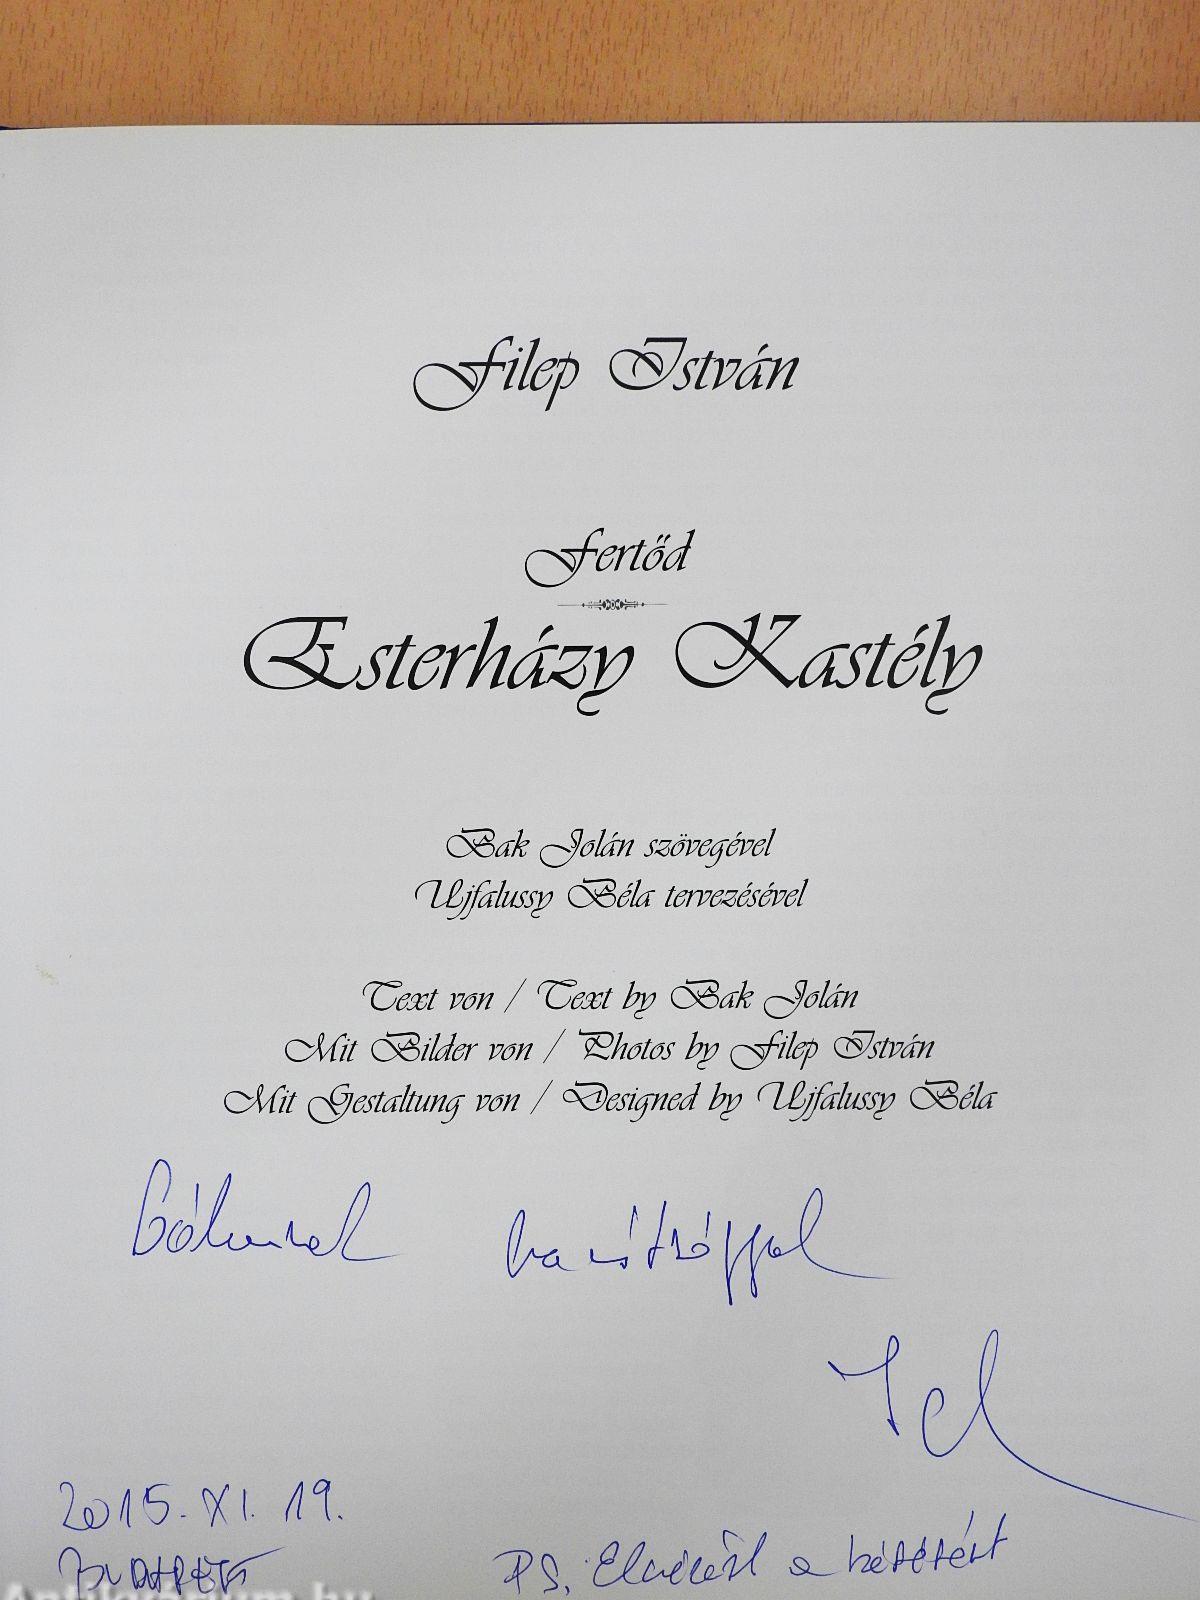 Filep István
Fertőd
Esterházy Kastély
Bak Jolán szövegével
Ujfalussy Béla tervezésével
Text von / Text by Bak Jolán
Mit Bilder von / Photos by Filep István
Mit Gestaltung von / Designed by Ujfalussy Béla
barátsággal
2015. XI. 19.
BUDAPEST
PS. a
Antikvárium.hu